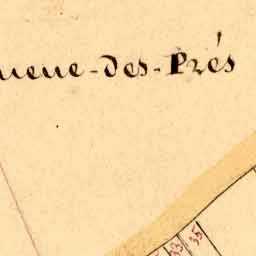 ueue-des-Prés
33
35